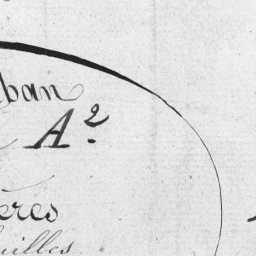 ban
A².
ères
uilles